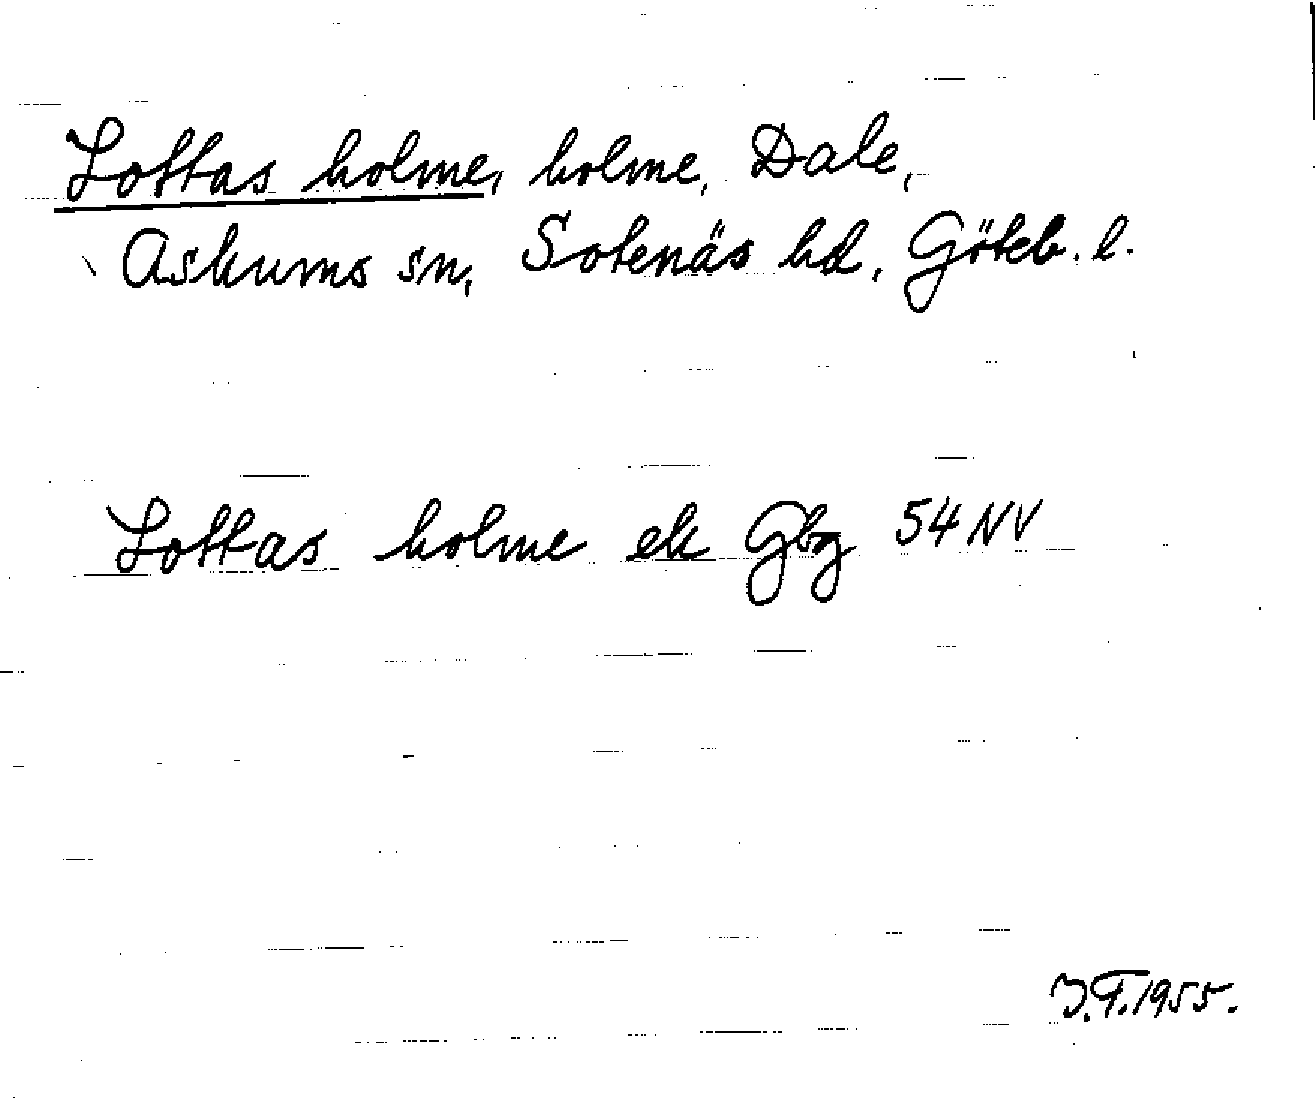 Lottas holme, holme, Dale,
Askums sn, Sotenäs hd, Göteb. l.
Lottas holme ek Gbg 54 NV
J.T. 1955.